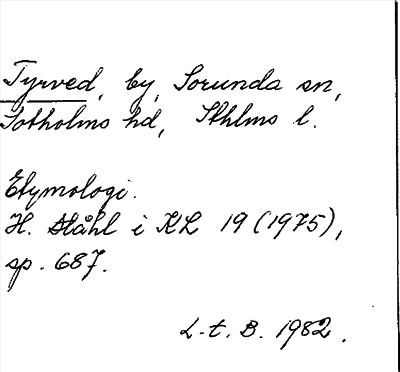 Tyrved, by, Sorunda sn,
Sotholms hd, Sthlms l.
Etymologi.
H. Ståhl i KL 19 (1975),
sp. 687.
L-t. B. 1982.